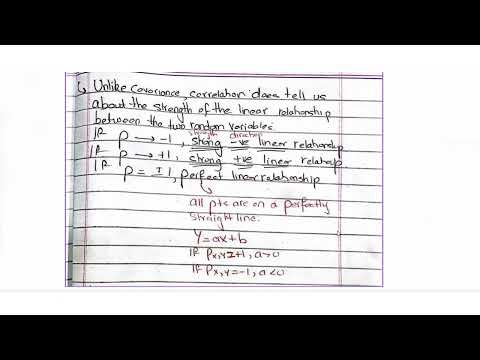 ↳ Unlike Covariance, correlation does tell us
about the strength of the linear relationship
between the two random variables.
strength direction
If ρ → -1, strong -ve linear relationship
If ρ → +1, strong +ve linear relatio
If ρ = ±1, perfect linear relationship
all pts are on a perfectly
straight line.
Y=ax+b
If ρx,y=+1, a>0
If ρx,y=-1, a<0